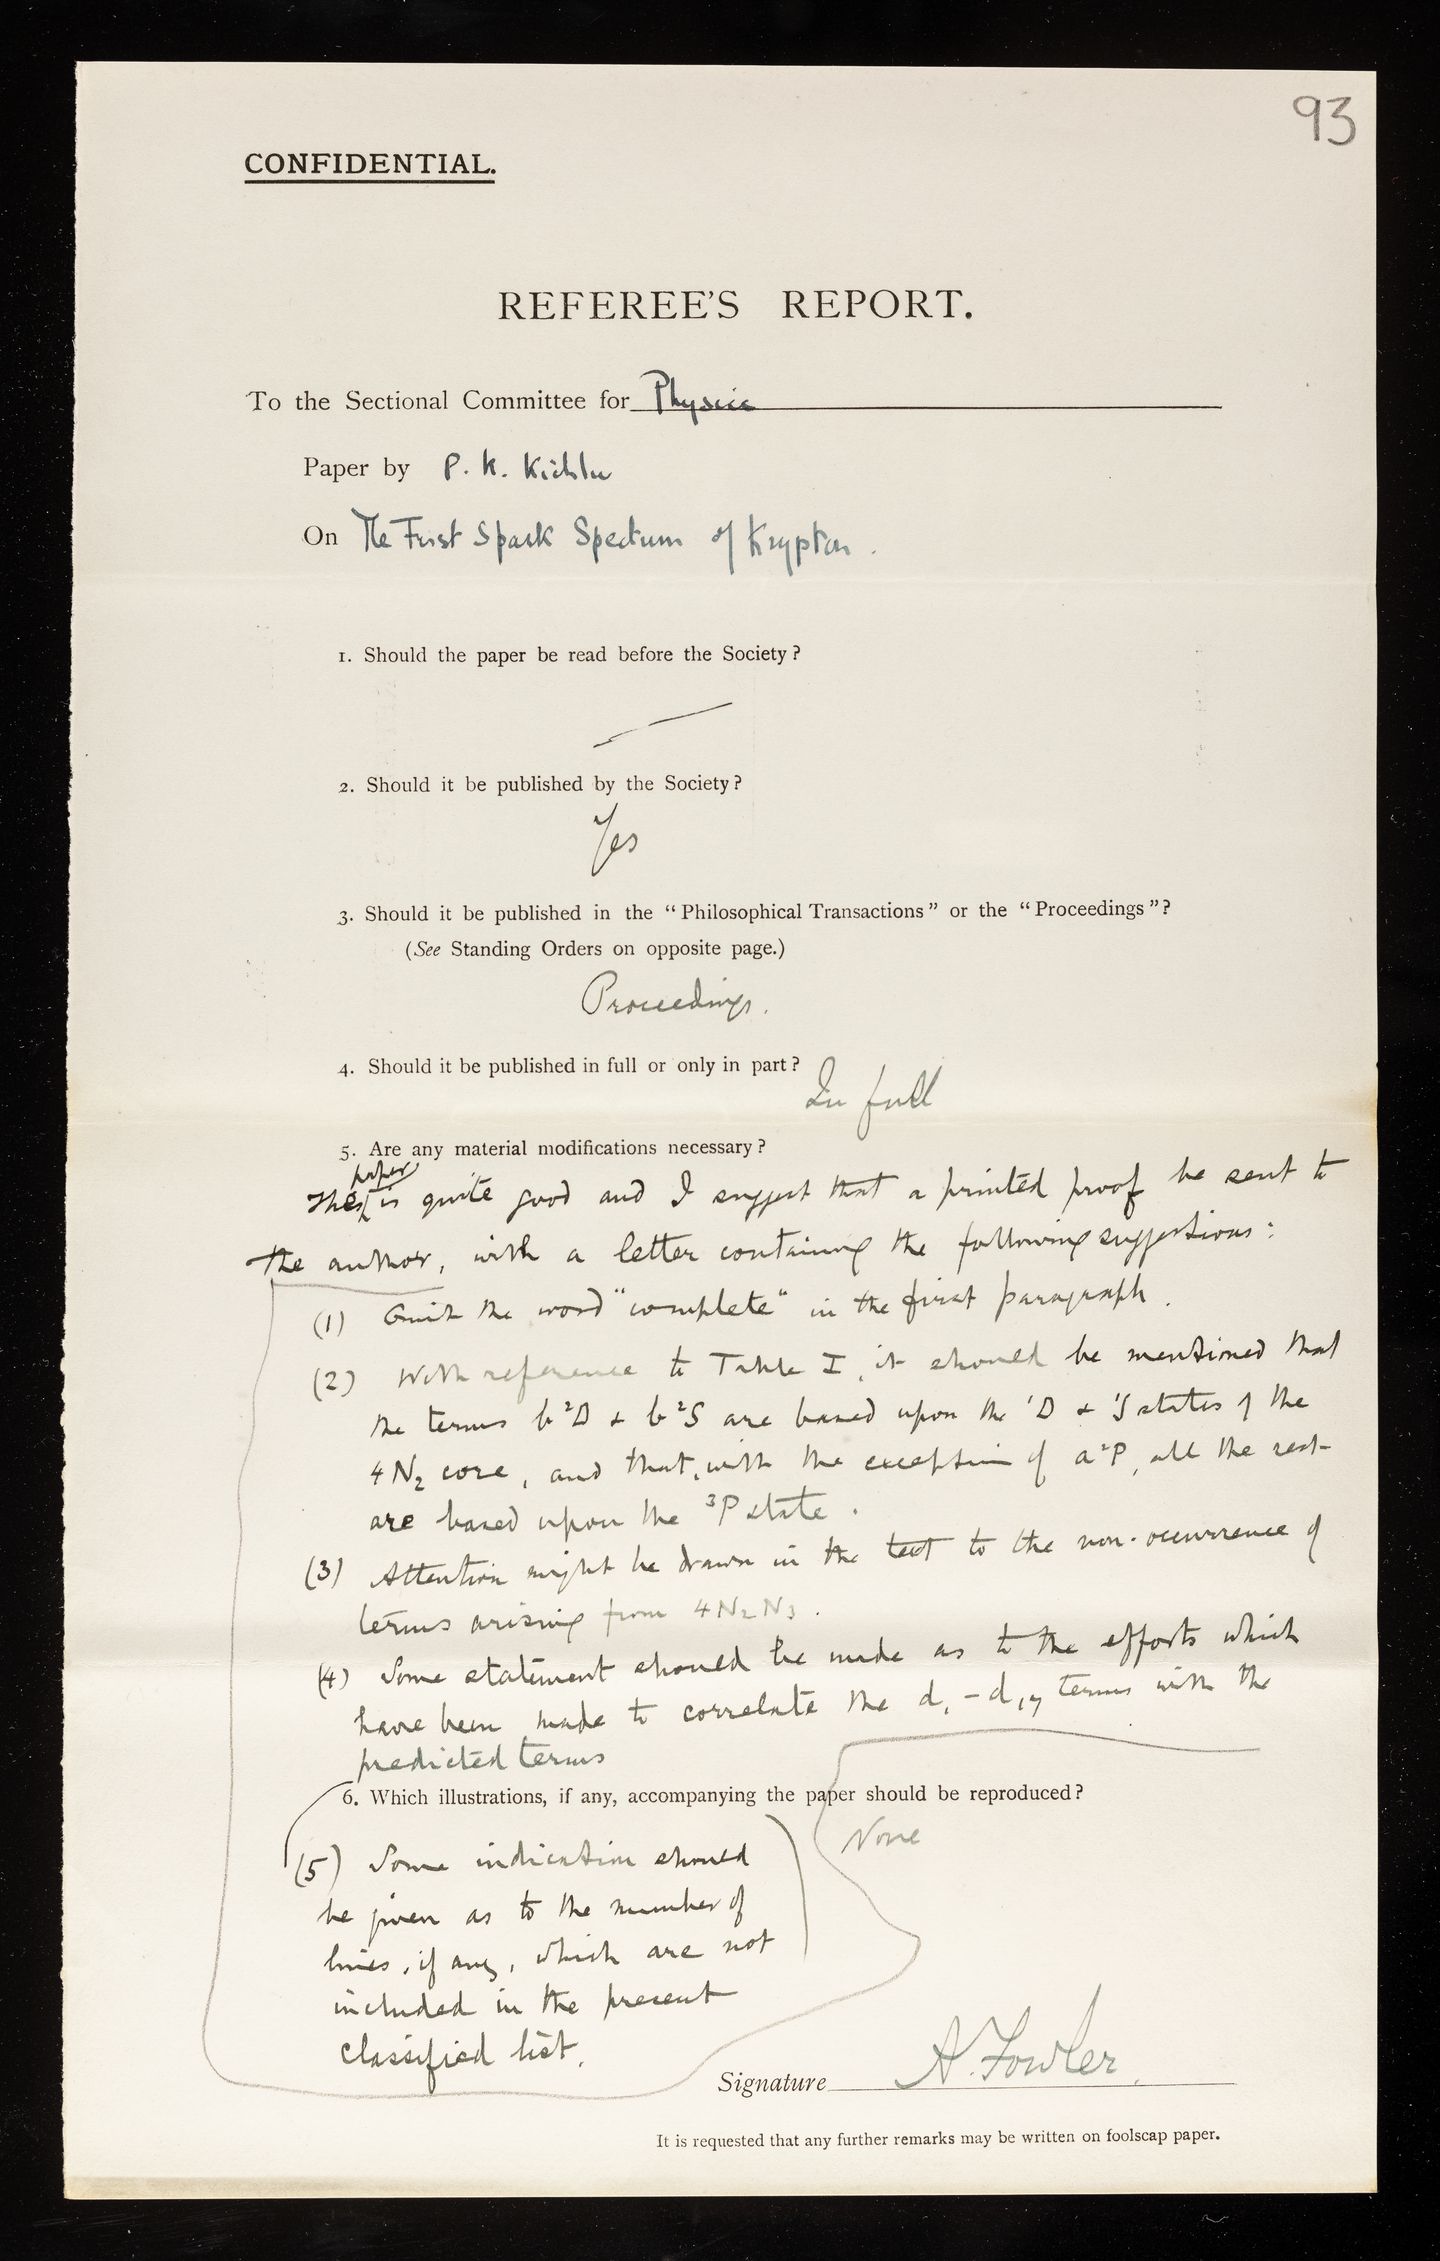 93
CONFIDENTIAL.
REFEREE'S REPORT.
To the Sectional Committee for Physics
Paper by P. K. Kichlu
On The First Spark Spectrum of Krypton.
1. Should the paper be read before the Society?
2. Should it be published by the Society?
Yes
3. Should it be published in the "Philosophical Transactions" or the "Proceedings"?
(See Standing Orders on opposite page.)
Proceedings.
4. Should it be published in full or only in part?
In full
5. Are any material modifications necessary?
paper
The is quite good and I suggest that a printed proof be sent to
the author, with a letter containing the following suggestions:
(1) Omit the word "complete" in the first paragraph.
(2) With reference to Table I, it should be mentioned that
the terms b²D & b²S are based upon the ¹D & ¹S states of the
4N₂ core, and that, with the exception of a²P, all the rest
are based upon the ³P state.
(3) Attention might be drawn in the text to the non-occurrence of
terms arising from 4N₂N₃.
(4) Some statement should be made as to the efforts which
have been made to correlate the d₁ – d₁₇ terms with the
predicted terms
6. Which illustrations, if any, accompanying the paper should be reproduced?
None
(5) Some indication should
be given as to the number of
lines, if any, which are not
included in the present
classified list.
Signature A. Fowler.
It is requested that any further remarks may be written on foolscap paper.